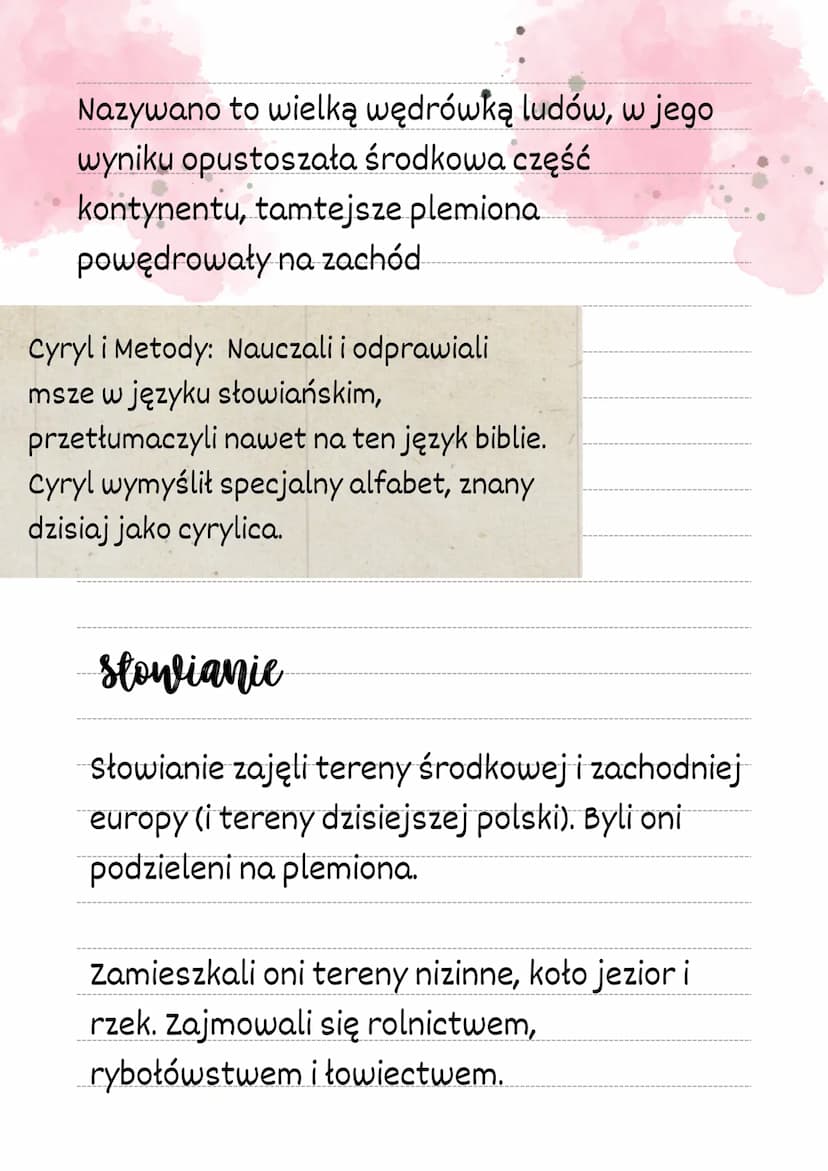 Nazywano to wielką wędrówką ludów, w jego
wyniku opustoszała środkowa część
kontynentu, tamtejsze plemiona
powędrowały na zachód
Cyryl i Metody: Nauczali i odprawiali
msze w języku słowiańskim,
przetłumaczyli nawet na ten język biblie.
Cyryl wymyślił specjalny alfabet, znany
dzisiaj jako cyrylica.
słowianie
Słowianie zajęli tereny środkowej i zachodniej
europy (i tereny dzisiejszej polski). Byli oni
podzieleni na plemiona.
Zamieszkali oni tereny nizinne, koło jezior i
rzek. Zajmowali się rolnictwem,
rybołówstwem i łowiectwem.